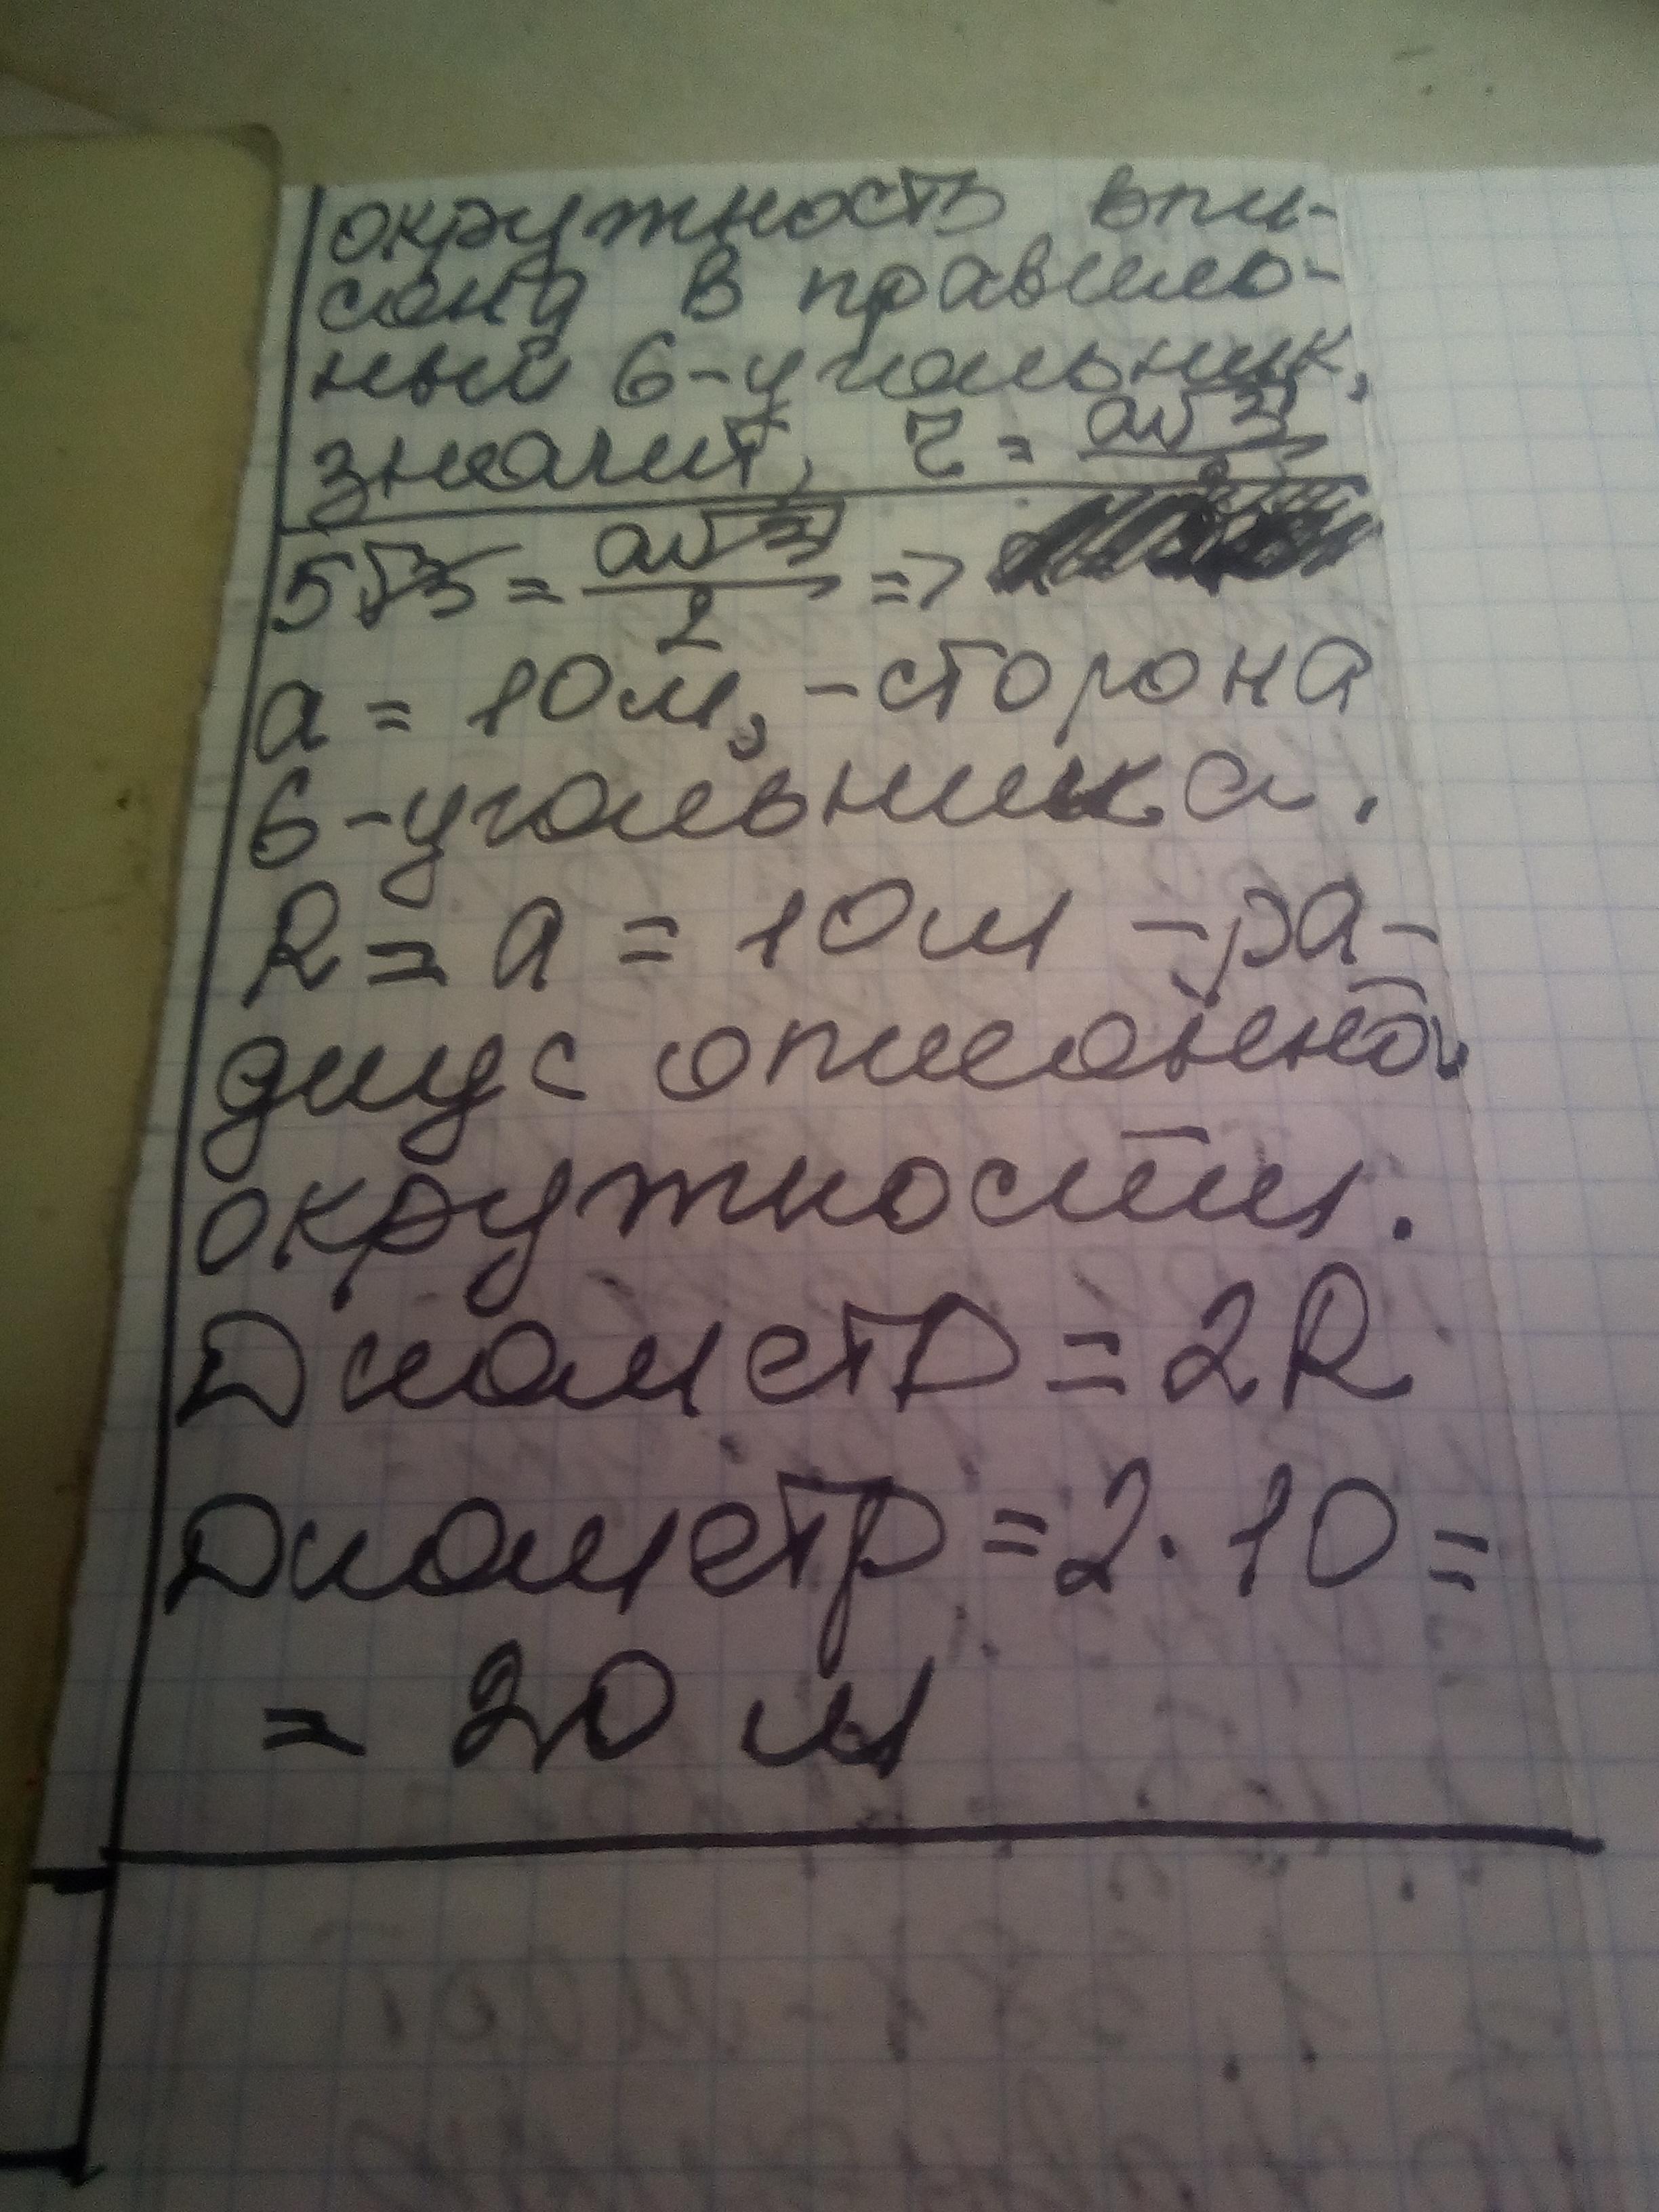 окружность впи-
сана в правиль-
ный 6-угольник,
значит, r = a√3/2
5√3 = a√3/2 =>
a = 10м, - сторона
6-угольника.
R = a = 10м - ра-
диус описанной
окружности.
Диаметр = 2R
Диаметр = 2·10 =
= 20 м